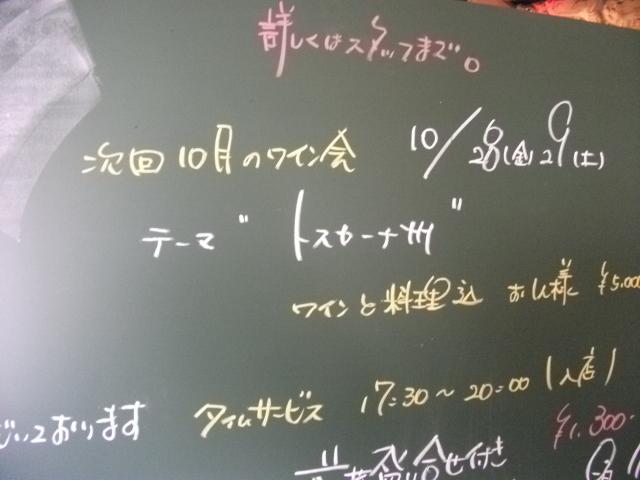 詳しくはスタッフまで。
次回10月のワイン会 10/28(金)29(土)
テーマ "トスカーナ州"
ワインと料理込 お一人様 ¥5.000
ております タイムサービス 17:30〜20:00(入店)
¥1.300
盛合せ付き